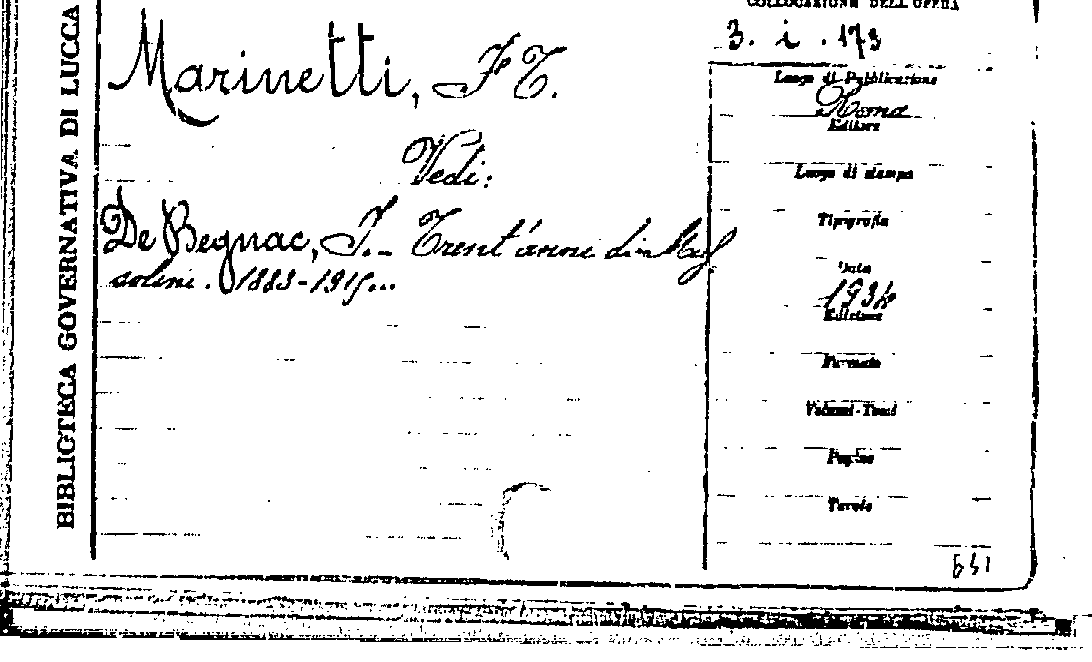 BIBLIOTECA GOVERNATIVA DI LUCCA
Marinetti, F. T.
Vedi:
De Begnac, I. - Trent'anni di Mus
solini. 1883-1915...
COLLOCAZIONE DELL'OPERA
3. i. 173
Luogo di Pubblicazione
Roma
Editore
Luogo di stampa
Tipografia
Data
1934
Edizione
Formato
Volumi-Tomi
Pagine
Tavole